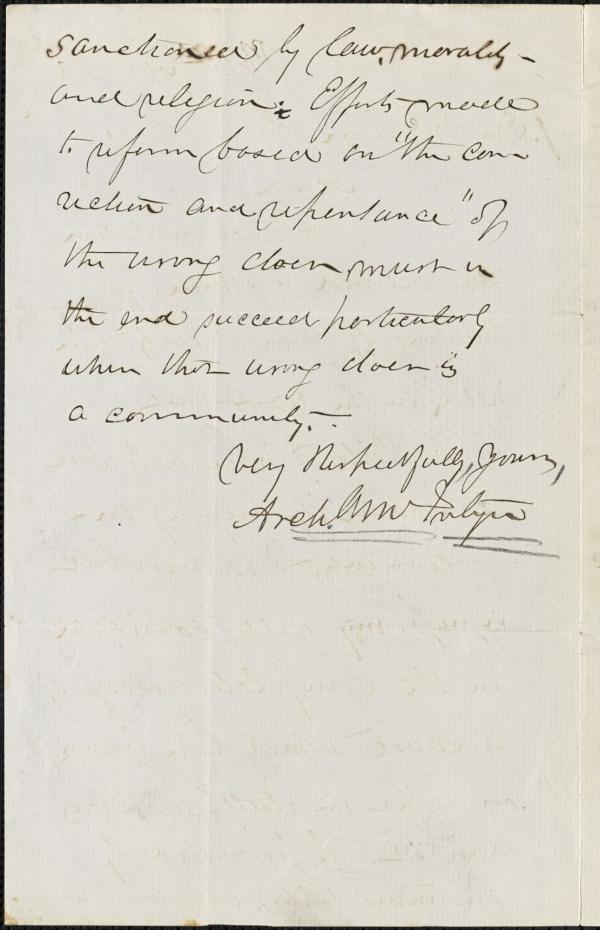 sanctioned by law, morality
and religion. Efforts made
to reform based on "the con
viction and repentance" of
the wrong doer, must in
the end succeed particularly
when that wrong doer is
a community.
Very Respectfully, Yours,
Arch. M. McIntyre